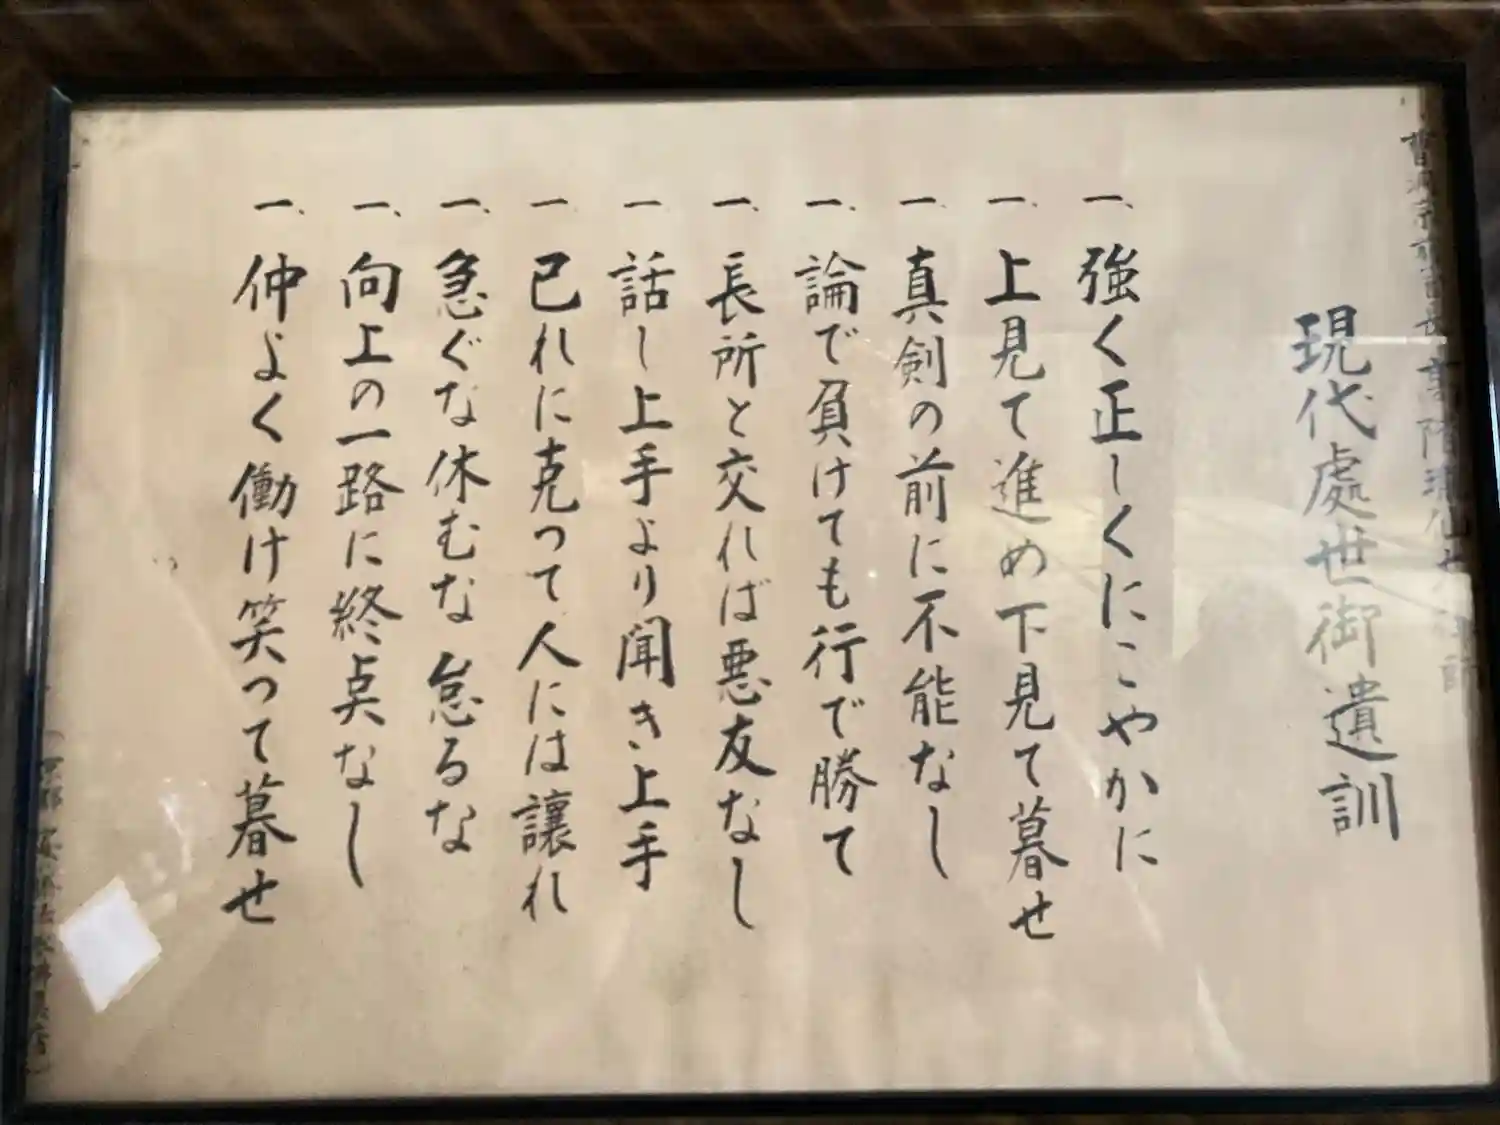 曹洞宗前管長 高階瓏仙大禅師
現代處世御遺訓
一、強く正しくにこやかに
一、上見て進め下見て暮せ
一、真剣の前に不能なし
一、論で負けても行で勝て
一、長所と交れば悪友なし
一、話し上手より聞き上手
一、已れに克つて人には譲れ
一、急ぐな休むな怠るな
一、向上の一路に終点なし
一、仲よく働け笑つて暮せ